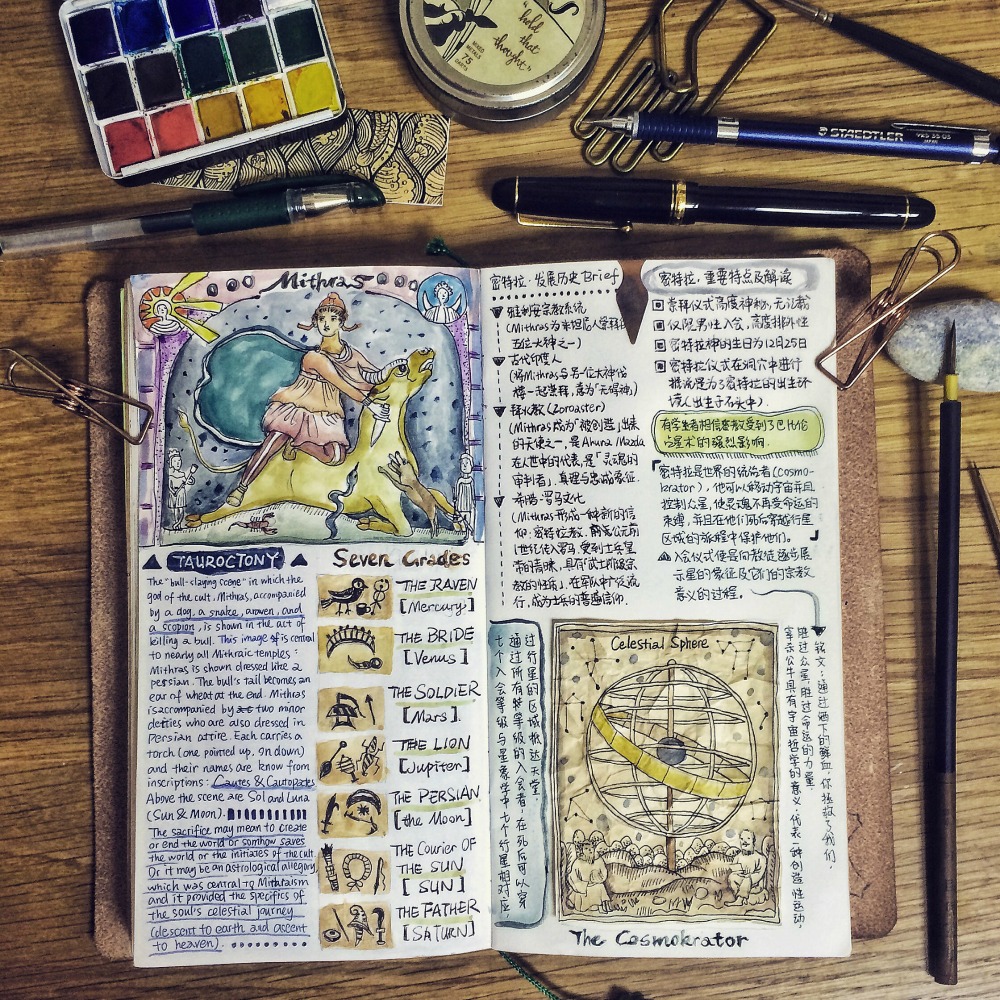 "hold
that
thought"
MIXED
METALS
75
DARTS
STAEDTLER
JAPAN
Mithras
TAUROCTONY
The "bull-slaying scene" in which the
god of the cult, Mithras, accompanied
by a dog, a snake, a raven, and
a scopion, is shown in the act of
killing a bull. This image is central
to nearly all Mithraic temples:
Mithras is shown dressed like a
persian. The bull's tail becomes an
ear of wheat at the end. Mithras
is accompanied by two minor
deities who are also dressed in
Persian attire. Each carries a
torch (one pointed up, on down)
and their names are know from
inscriptions: Cautes & Cautopates
Above the scene are Sol and Luna
(Sun & Moon).
The sacrifice may mean to create
or end the world or somhow saves
the world or the initiates of the cult.
Or it may be an astrological allegory,
which was central to Mithraism
and it provided the specifics of
the soul's celestial journey
(descent to earth and ascent
to heaven).
Seven Grades
THE RAVEN
[Mercury]
THE BRIDE
[Venus]
THE SOLDIER
[Mars].
THE LION
[Jupiter]
THE PERSIAN
[the Moon]
THE Courier OF
THE SUN
[SUN]
THE FATHER
[SATURN]
密特拉·发展历史 Brief
雅利安宗教系统
(Mithras为米坦尼人崇拜的
五位大神之一)
古代印度人
(将Mithras与另一位大神伐
楼一起崇拜,意为"无偏神)
拜火教(Zoroaster)
(Mithras成为"被创造"出来
的天使之一,是Ahura Mazda
在人世中的代表,是「灵魂的
审判者」,真理与忠诚象征.
希腊·罗马文化
(Mithras形成一种新的信
仰:密特拉教.前公元前
1世纪传入罗马,受到士兵皇
帝的青睐,具有"武士阶级宗
教的性质",在军队中广泛流
行,成为士兵的普遍信仰.
密特拉·重要特点及解读
崇拜仪式高度神秘,无记载
仅限男性入会,高度排外性
密特拉神的生日为12月25日
密特拉仪式在洞穴中进行
据说是为了密特拉的出生环
境(出生于石头中).
有学生者相信密教受到了巴比伦
占星术的强烈影响.
密特拉是世界的统治者(cosmo-
krator),他可以移动宇宙并且
控制众星,使灵魂不再受命运的
束缚,并且在他们死后穿越行星
区域的旅程中保护他们.
入会仪式便是向教徒逐步展
示星的象征及它们的宗教
意义的过程.
七个入会等级与星象学中七个行星相对应,
通过所有特等级的入会者,在死后可以穿
过行星的区域抵达天堂
Celestial Sphere
铭文:通过洒下的鲜血,你拯救了我们,
胜过众星,胜过命运的力量
宰杀公牛具有宇宙哲学的意义,代表一种创造性运动,
The Cosmokrator